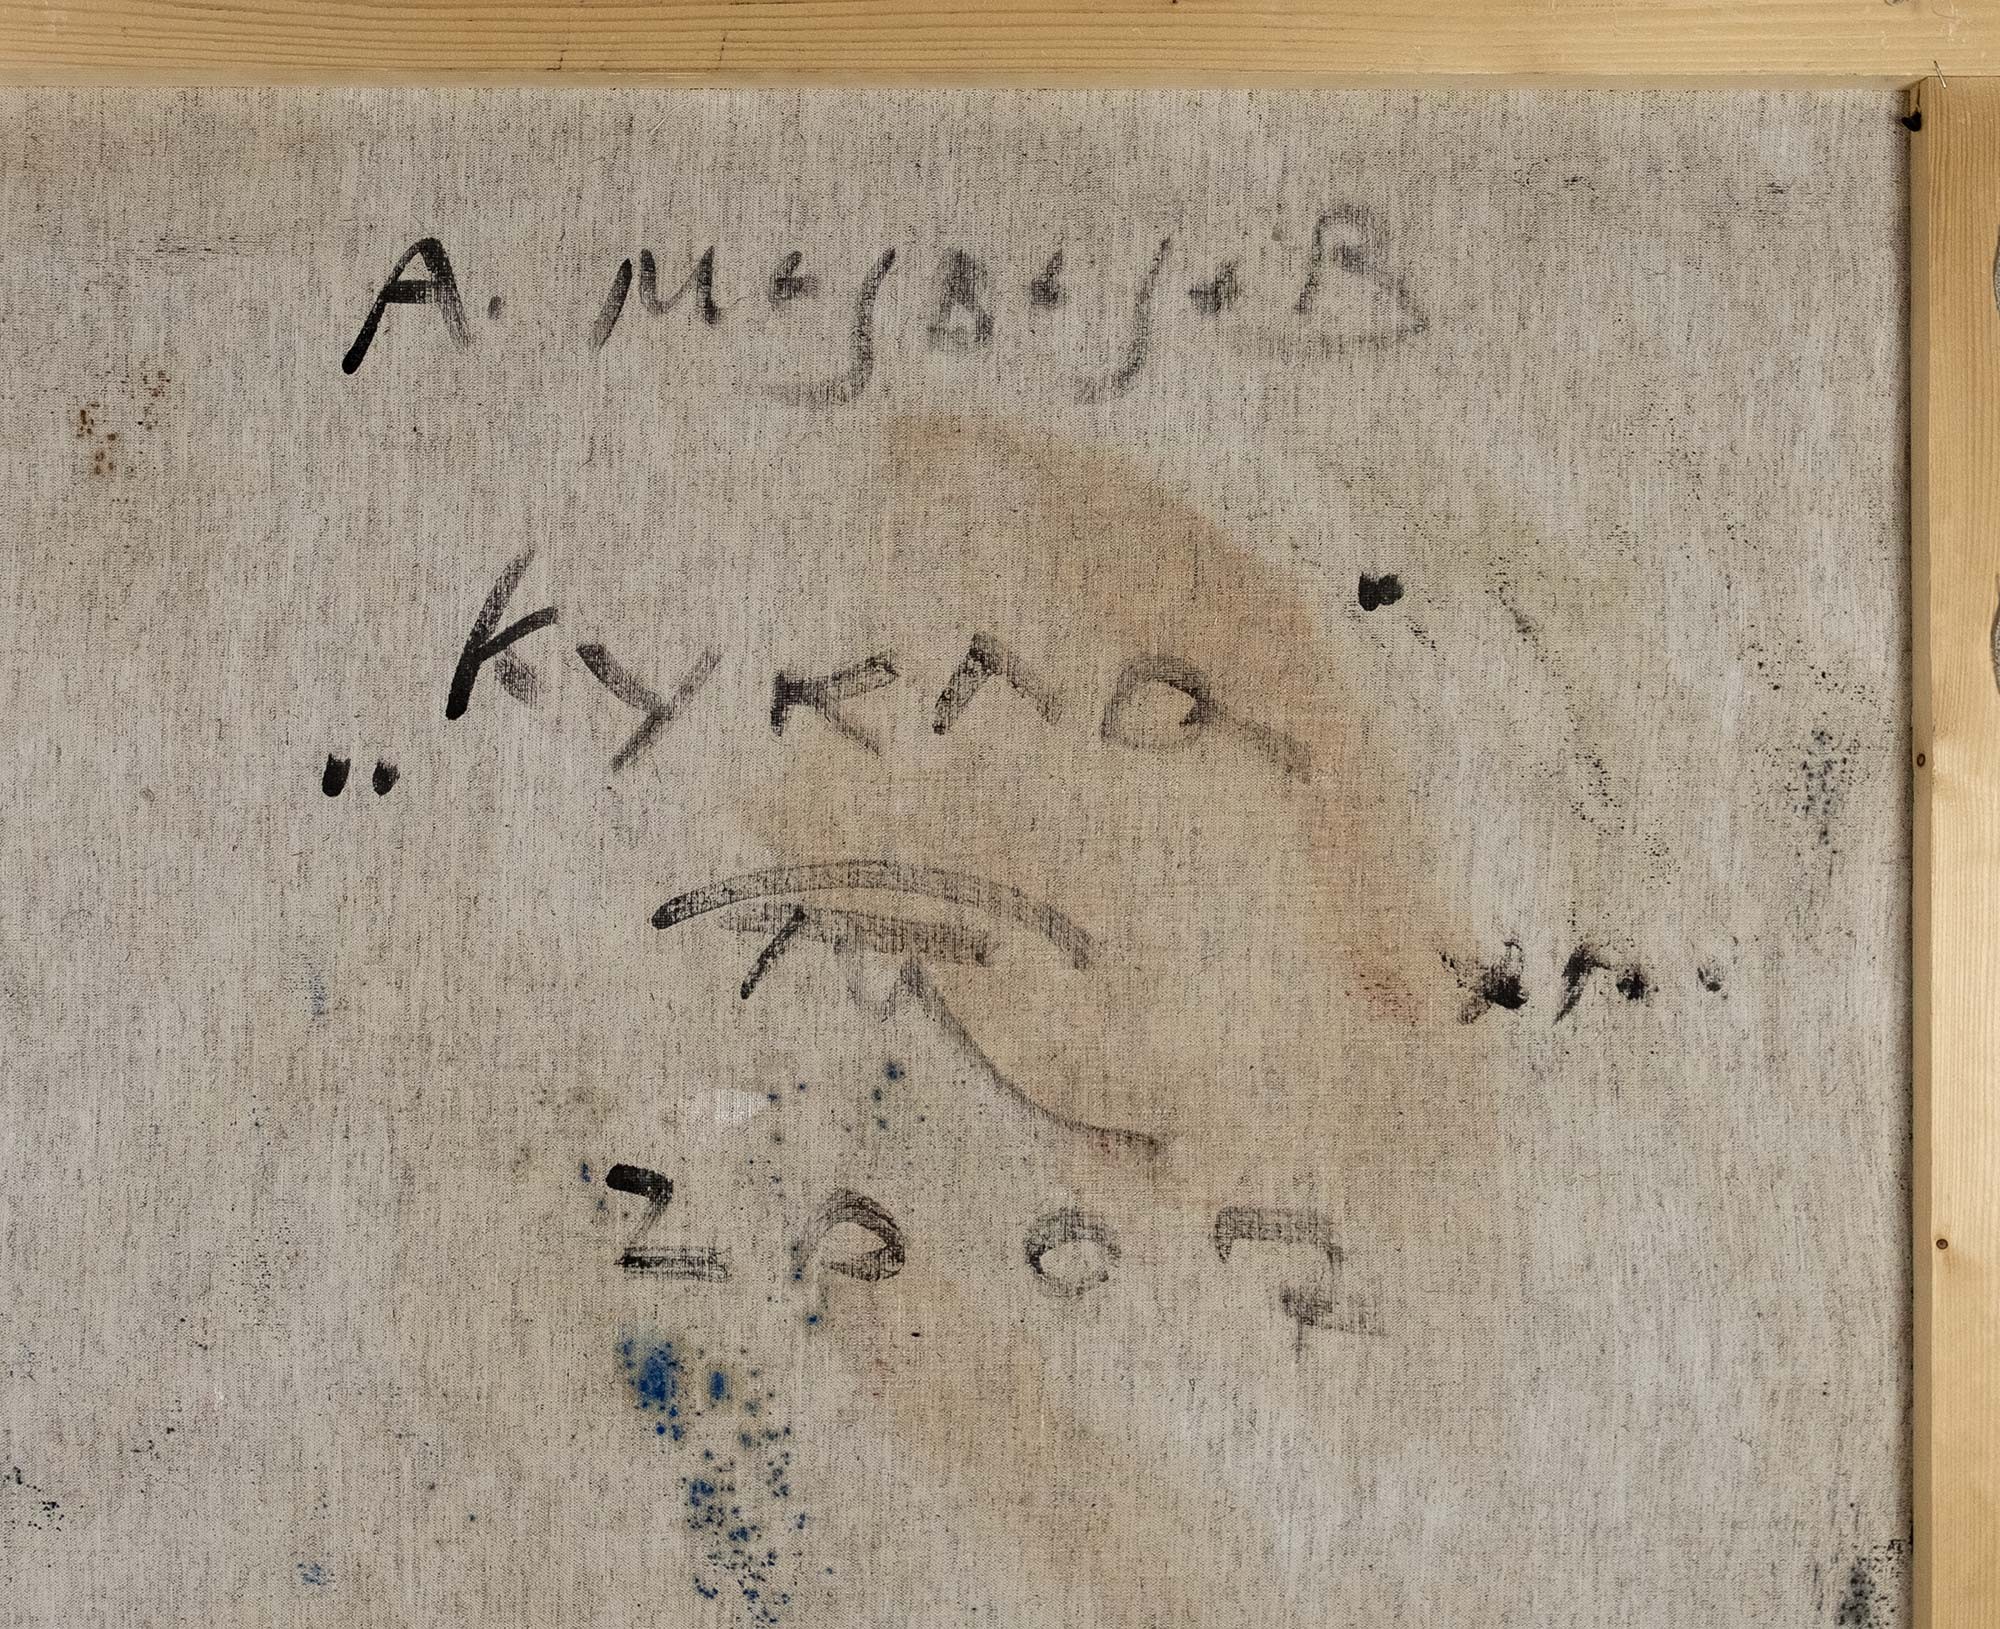 А. Медведев
„Кукла"
х.м.
2007